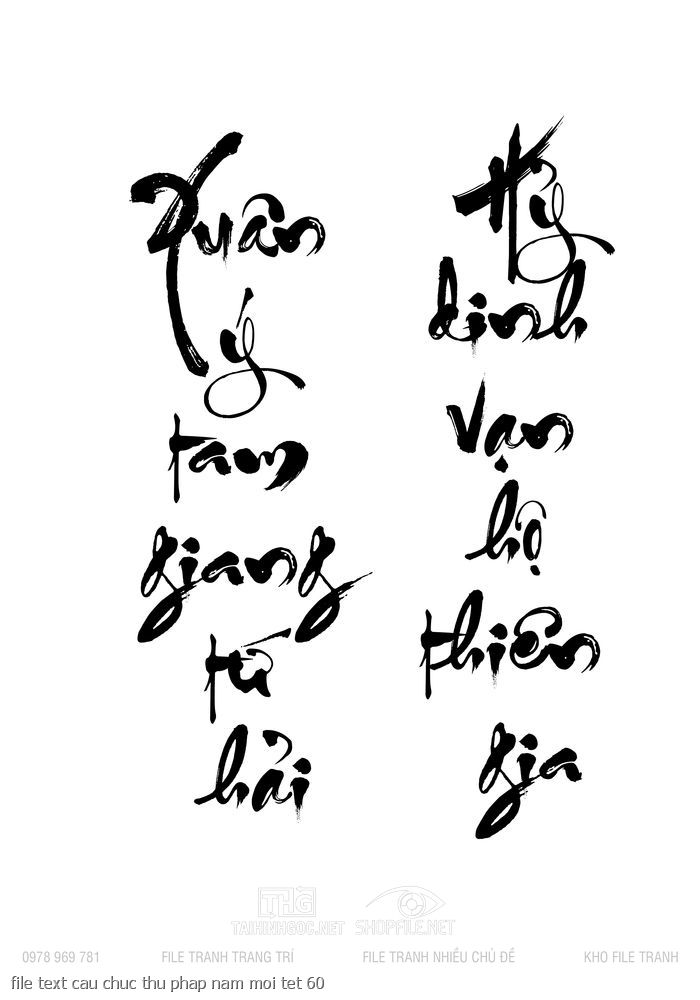 Xuân
ý
tam
giang
tứ
hải
Hỷ
dinh
vạn
hộ
thiên
gia
THG
TAIHINHGOC.NET SHOPFILE.NET
0978 969 781 FILE TRANH TRANG TRÍ FILE TRANH NHIỀU CHỦ ĐỀ KHO FILE TRANH
file text cau chuc thu phap nam moi tet 60